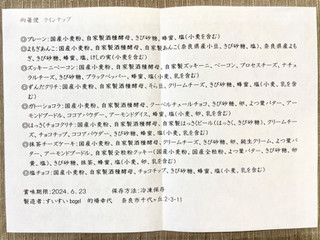 的場便 ラインナップ
◎プレーン:国産小麦粉、自家製酒種酵母、きび砂糖、蜂蜜、塩(小麦を含む)
◎よもぎあんこ:国産小麦粉、自家製酒種酵母、自家製あんこ(奈良県産小豆、きび砂糖、塩)、奈良県産よも
ぎ、きび砂糖、蜂蜜、塩、けしの実(小麦を含む)
◎ズッキーニベーコン:国産小麦粉、自家製酒種酵母、自家製ズッキーニ、ベーコン、プロセスチーズ、ナチュ
ラルチーズ、きび砂糖、ブラックペッパー、蜂蜜、塩(小麦、乳を含む)
◎ずんだクリチ:国産小麦粉、自家製酒種酵母、そら豆、クリームチーズ、きび砂糖、蜂蜜、塩(小麦、乳を
含む)
◎ガトーショコラ:国産小麦粉、自家製酒種酵母、クーベルチュールチョコ、きび砂糖、卵、よつ葉バター、アー
モンドプードル、ココアパウダー、アーモンドダイス、蜂蜜、塩(小麦、卵、乳を含む)
◎はっさくチョコクリチ:国産小麦粉、自家製酒種酵母、自家製はっさくピール(はっさく、きび砂糖)、クリームチー
ズ、チョコチップ、ココアパウダー、きび砂糖、蜂蜜、塩(小麦、乳を含む)
◎抹茶チーズケーキ:国産小麦粉、自家製酒種酵母、クリームチーズ、きび砂糖、卵、純生クリーム、よつ葉バ
ター、アーモンドプードル、自家製全粒粉クッキー(国産小麦粉、国産全粒粉、よつ葉バター、きび砂糖、卵、
塩)、きび砂糖、抹茶、蜂蜜、塩(小麦、卵、乳を含む)
◎塩チョコ:国産小麦粉、自家製酒種酵母、チョコチップ、きび砂糖、蜂蜜、塩(小麦、乳を含む)
賞味期限:2024.6.23 保存方法:冷凍保存
製造者:すいすいbagel 的場幸代 奈良市千代ヶ丘2-3-11